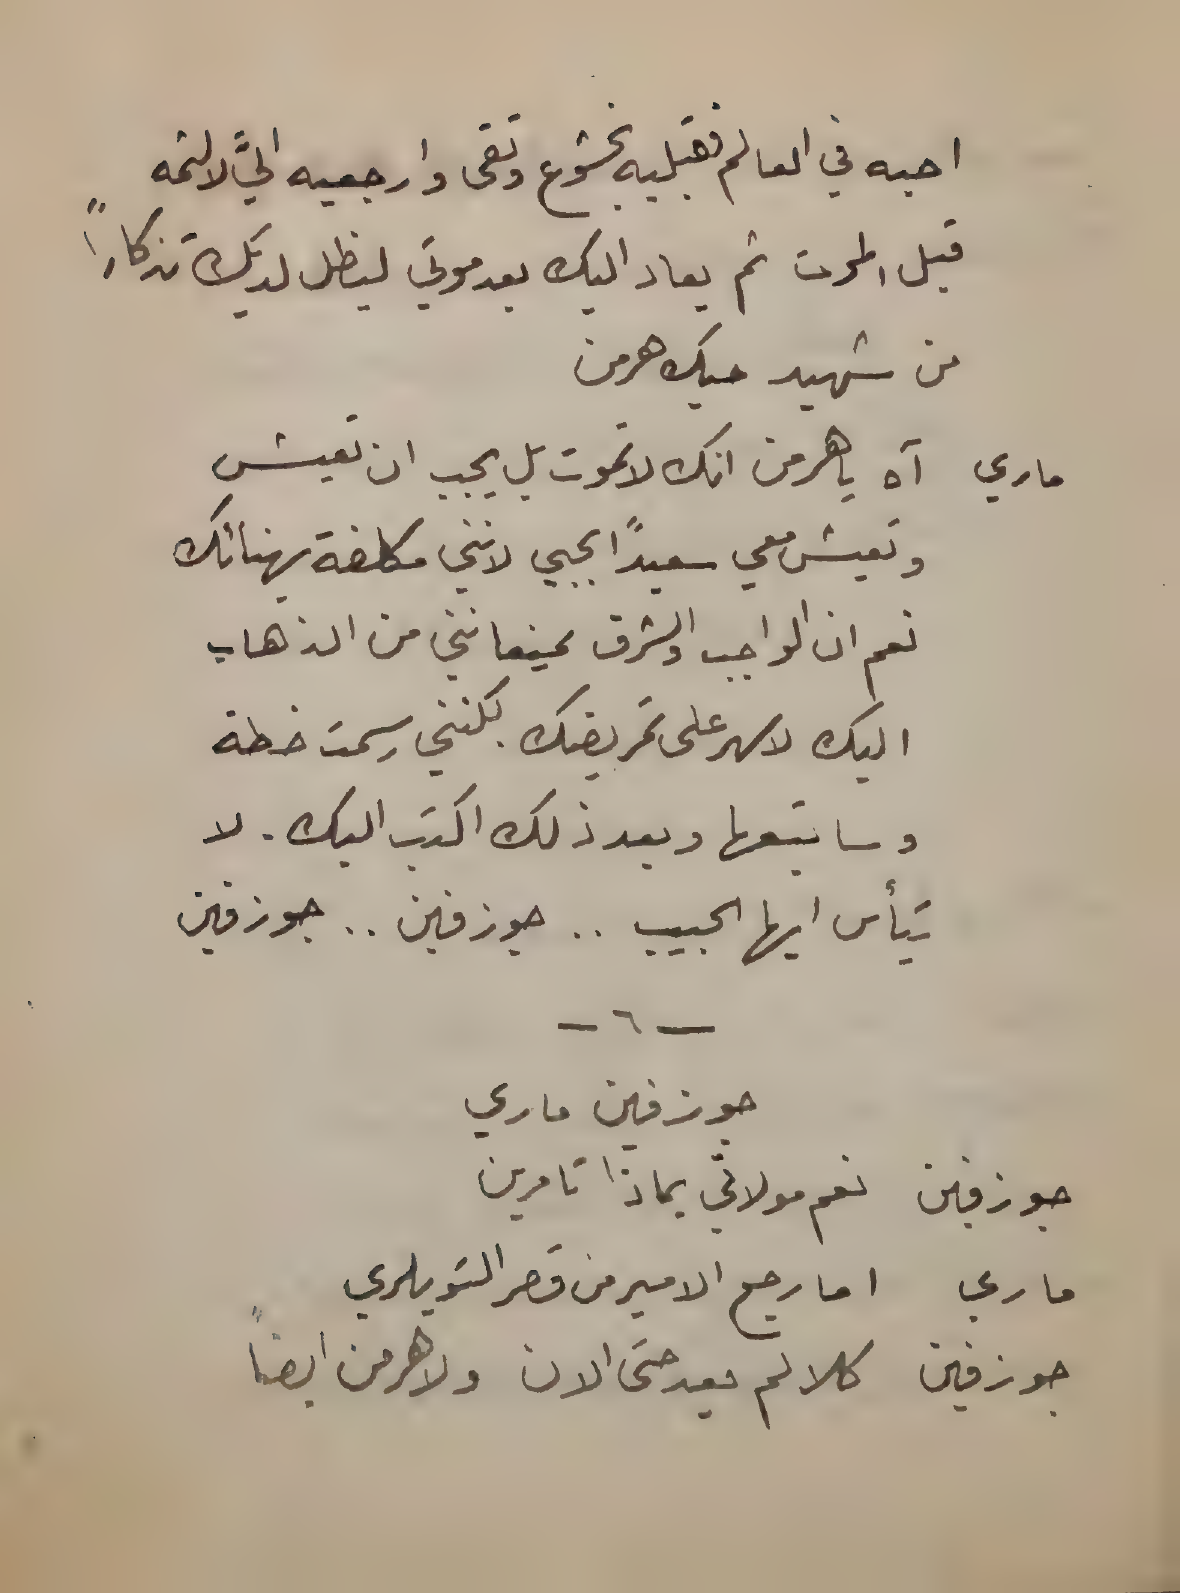 احبه في العالم فقبليه بخشوع وتقى وارجعيه اليَّ لالثمه
قبل الموت ثم يعاد اليك بعد موتي ليظل لديك تذكاراً
من شهيد حبك هرمن
ماري آه ياهرمن انك لاتموت بل يجب ان تعيش
وتعيش معي سعيداً بحبي لانني مكلفة بهنائك
نعم ان الواجب والشرف يمنعانني من الذهاب
اليك لاسهر على تمريضك. لكنني رسمت خطة
وساتبعها وبعد ذلك اكتب اليك. لا
تيأس ايها الحبيب .. جوزفين .. جوزفين
— ٦ —
جوزفين ماري
جوزفين نعم مولاتي بماذا تامرين
ماري اما رجع الامير من قصر التويلري
جوزفين كلا لم يعد حتى الان ولاهرمن ايضاً